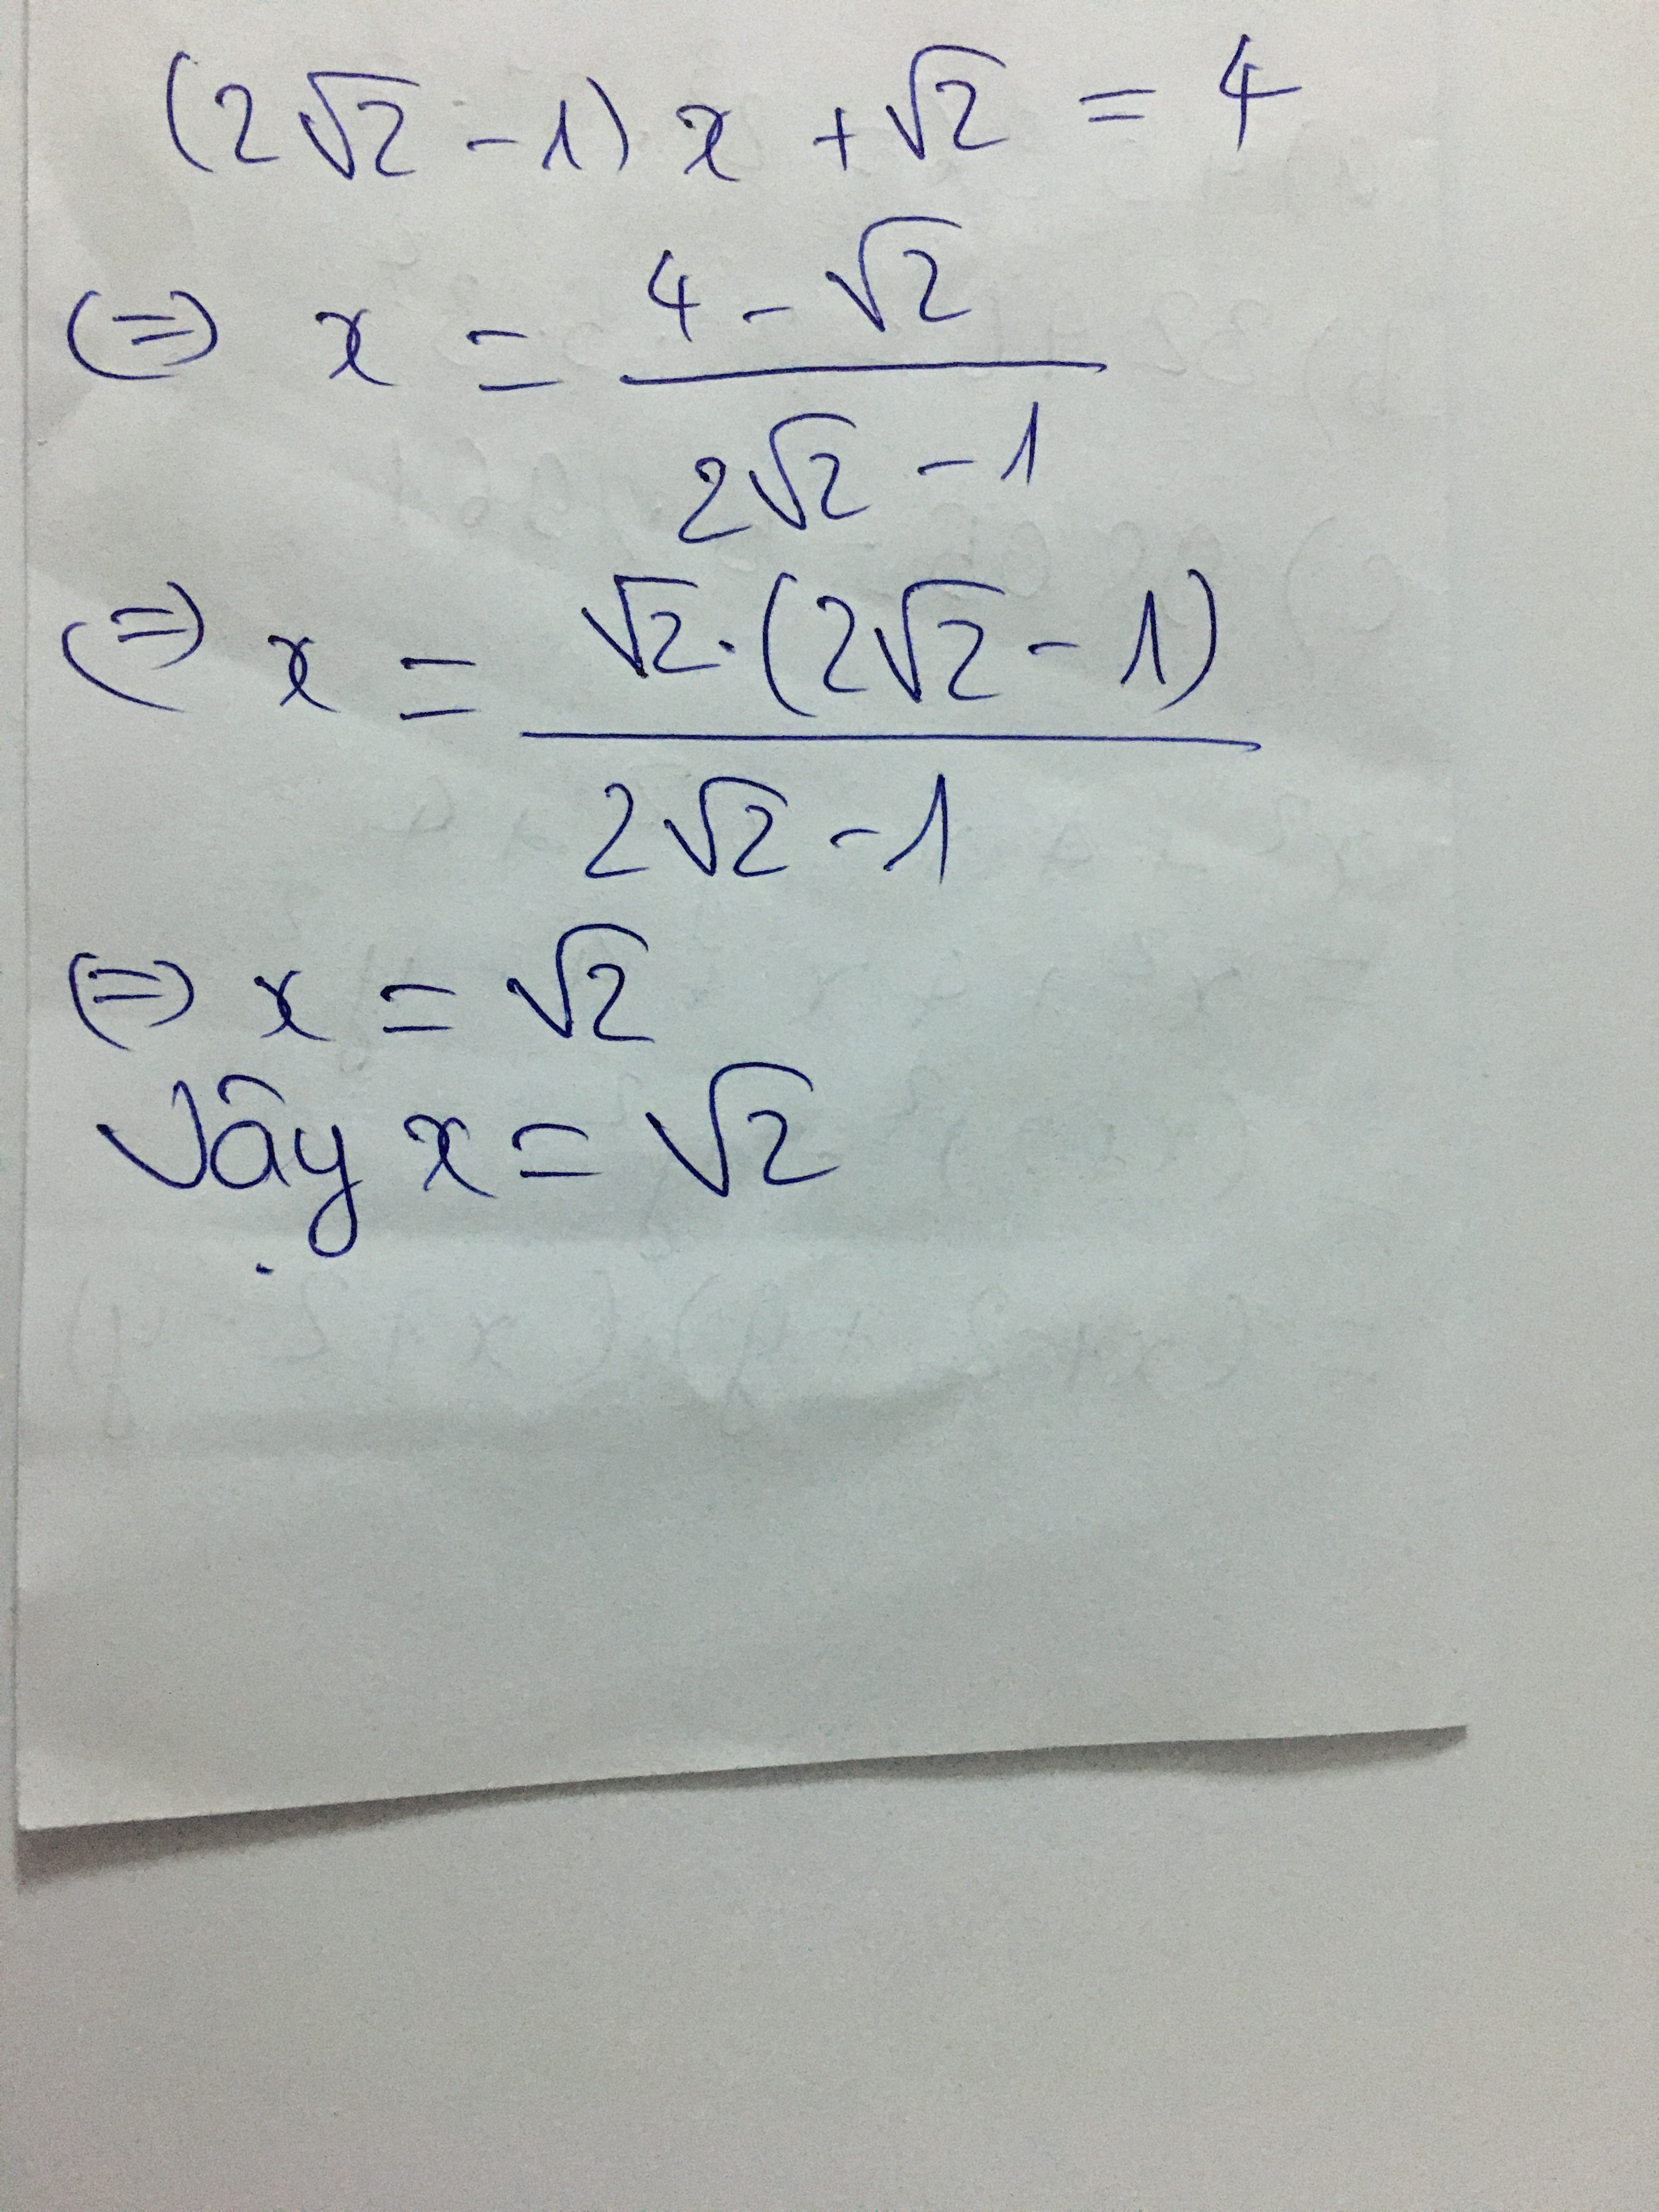 (2√2 - 1) x + √2 = 4
(=) x = (4 - √2)/(2√2 - 1)
(=) x = (√2 . (2√2 - 1))/(2√2 - 1)
(=) x = √2
Vậy x = √2